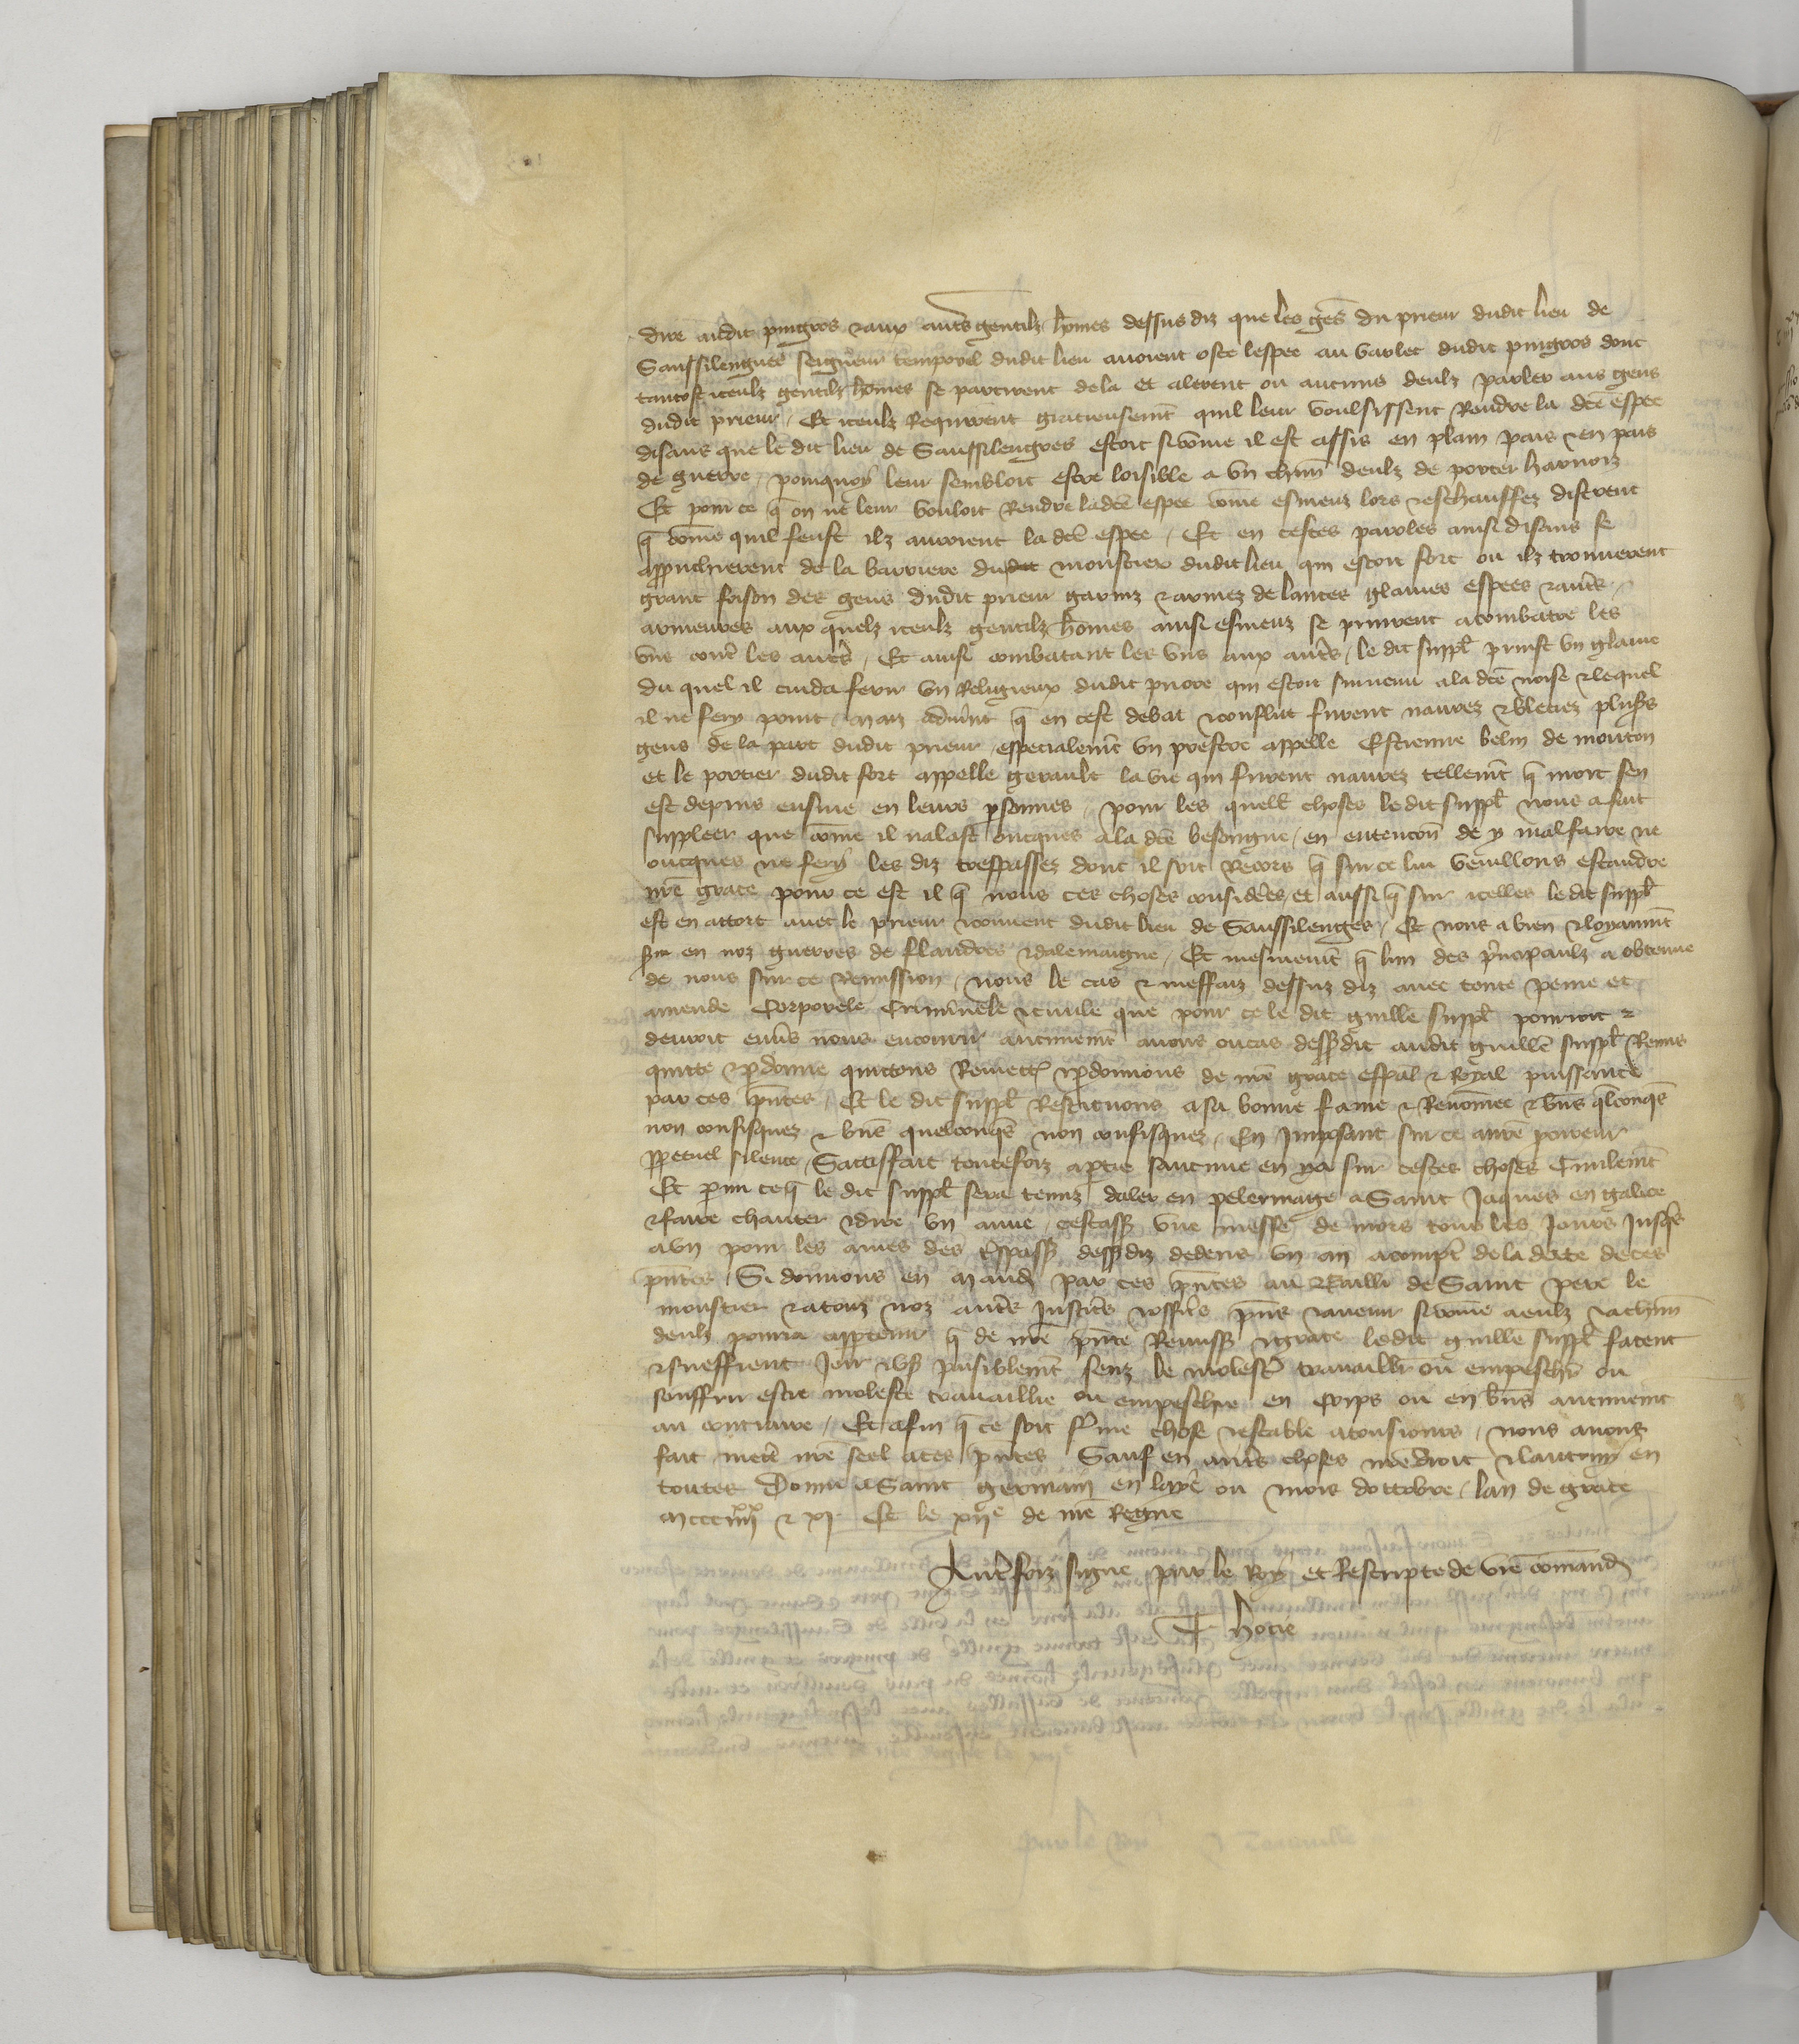 dire audit pingros & aux autˢ gentilz hōmes dessus diz que les gēs du prieur dudit lieu de
Saussilenges seigneur temporel dudit lieu avoient oste lespee au varlet dudit pingros dont
tantost iceulz gentilz hōmes se partirent dela et alerent ou aucuns deulz parler aus gens
dudit prieur / Et iceulz Requirent gracieusemēt quil leur voulsissent Rendre la dcē espee
disans que le dit lieu de Saussilenges estoit si cōme il est assis en plain pais & en pais
de guerre / pourquoy leur sembloit estre loisible a un chūn deulz de porter harnoiz
Et pour ce q̄ on ne leur vouloit Rendre ladcē espee cōme esmeuz lors & eschauffez distrent
q̄ cōme quil feust ilz auroient la dcē espee / Et en cestes paroles ainsi disans se
approuchierent de la barriere dudit moustier dudit lieu qui estoit fort ou ilz trouverent
grant foison des gens dudit prieur garniz & armez de lances glaives espees & autˢ
armeures aux quelz iceulz gentilz hōmes ainsi esmeuz se prinrent a combatre les
uns contˢ les autˢ / Et ainsi combatant les uns aux autˢ / le dit suppl' prinst un glaive
du quel il cuida ferir un Religieux dudit priore qui estoit survenu a la dcē noise & lequel
il ne fery point / mais advint q̄ en cest debat & conflict furent navrez & bleciez plusˢ
gens de la part dudit prieur / especialemēt un prestre appelle Estienne belin de mouton
et le portier dudit fort appelle gerault la vie qui furent navrez tellemēt q̄ mort sen
est depuis ensuie en leurs psonnes / pour les quell' choses le dit suppl' nous a fait
supplier que cōme il nalast oncques a la dcē besoingne / en entencōn de y malfaire ne
oncques ne fery les diz trespassez dont il soit Recors q̄ sur ce lui veuillons estandre
nrē grace pour ce est il q̄ nous ces choses considerēes / et aussi q̄ sur icelles le dit suppl'
est en accort avec le prieur & couvent dudit lieu de Saussilenges / Et nous a bien & loyaumēt
servi en noz guerres de flandres & dalemaigne / Et mesmemēt q̄ lun des prīcipaulz a obtenue
de nous sur ce Remission / nous le cas & meffaiz dessuz diz avec toute peine et
amende Corporele Criminele & civile que pour ce le dit guille suppl' pourroit &
devroit envˢ nous encourir aucunemēt avons ou cas dessusdit audit guillē suppl' Remis
quitte & pdonne quittons Remettōs & pdonnons de nrē grace espāl & Royal puissance
par ces pn̄tes / Et le dit suppl' Restituons a sa bonne fame & Renōmee & biēs qlconqs
non confisquez & biēs quelconqs non confisquez / En Imposant sur ce a nrē procureur
ppetuel silence / Sattisffait toutefoiz a ptie saucune en ya sur cestes choses Civilemēt
Et pmi ce q̄ le dit suppl' sera tenuz daler en pelerinage a Saint Jaques en galice
& faire chanter & dire un annue / cestass' une messe de mors tous les Jours Jusqs
a un pour les ames des trespass' dessdiz dedens un an a compt' de la date de ces
pn̄tes / Si donnons en mandˢ par ces pn̄tes au bailli de Saint pere le
moustier & a touz noz autˢ justicˢ & officˢ pn̄s & avenir si cōme a eulz & a chūn
deulz pourra apptenir q̄ de nrē pn̄te Remiss' & grace le dit guille suppl' facent
& sueffrent Joir & us' paisiblemēt senz le molestˢ travaillier ou empeschˢ ou
souffrir estre moleste travaillie ou empeschie en Corps ou en biēs aucunemēt
au contraire / Et afin q̄ ce soit ferme chose & estable a tousiours / nous avons
fait mettˢ nrē seel a ces pn̄tes Sauf en autˢ choses nrē droit & lautruy en
toutes Donne a Saint germain en laye ou mois doctobre / lan de grace
M CCC IIIIxx & XI Et le XIIe de nrē Regne
Autˢfoiz signe par le Roy et Rescripte de vrē cōmandˢ
T hocie